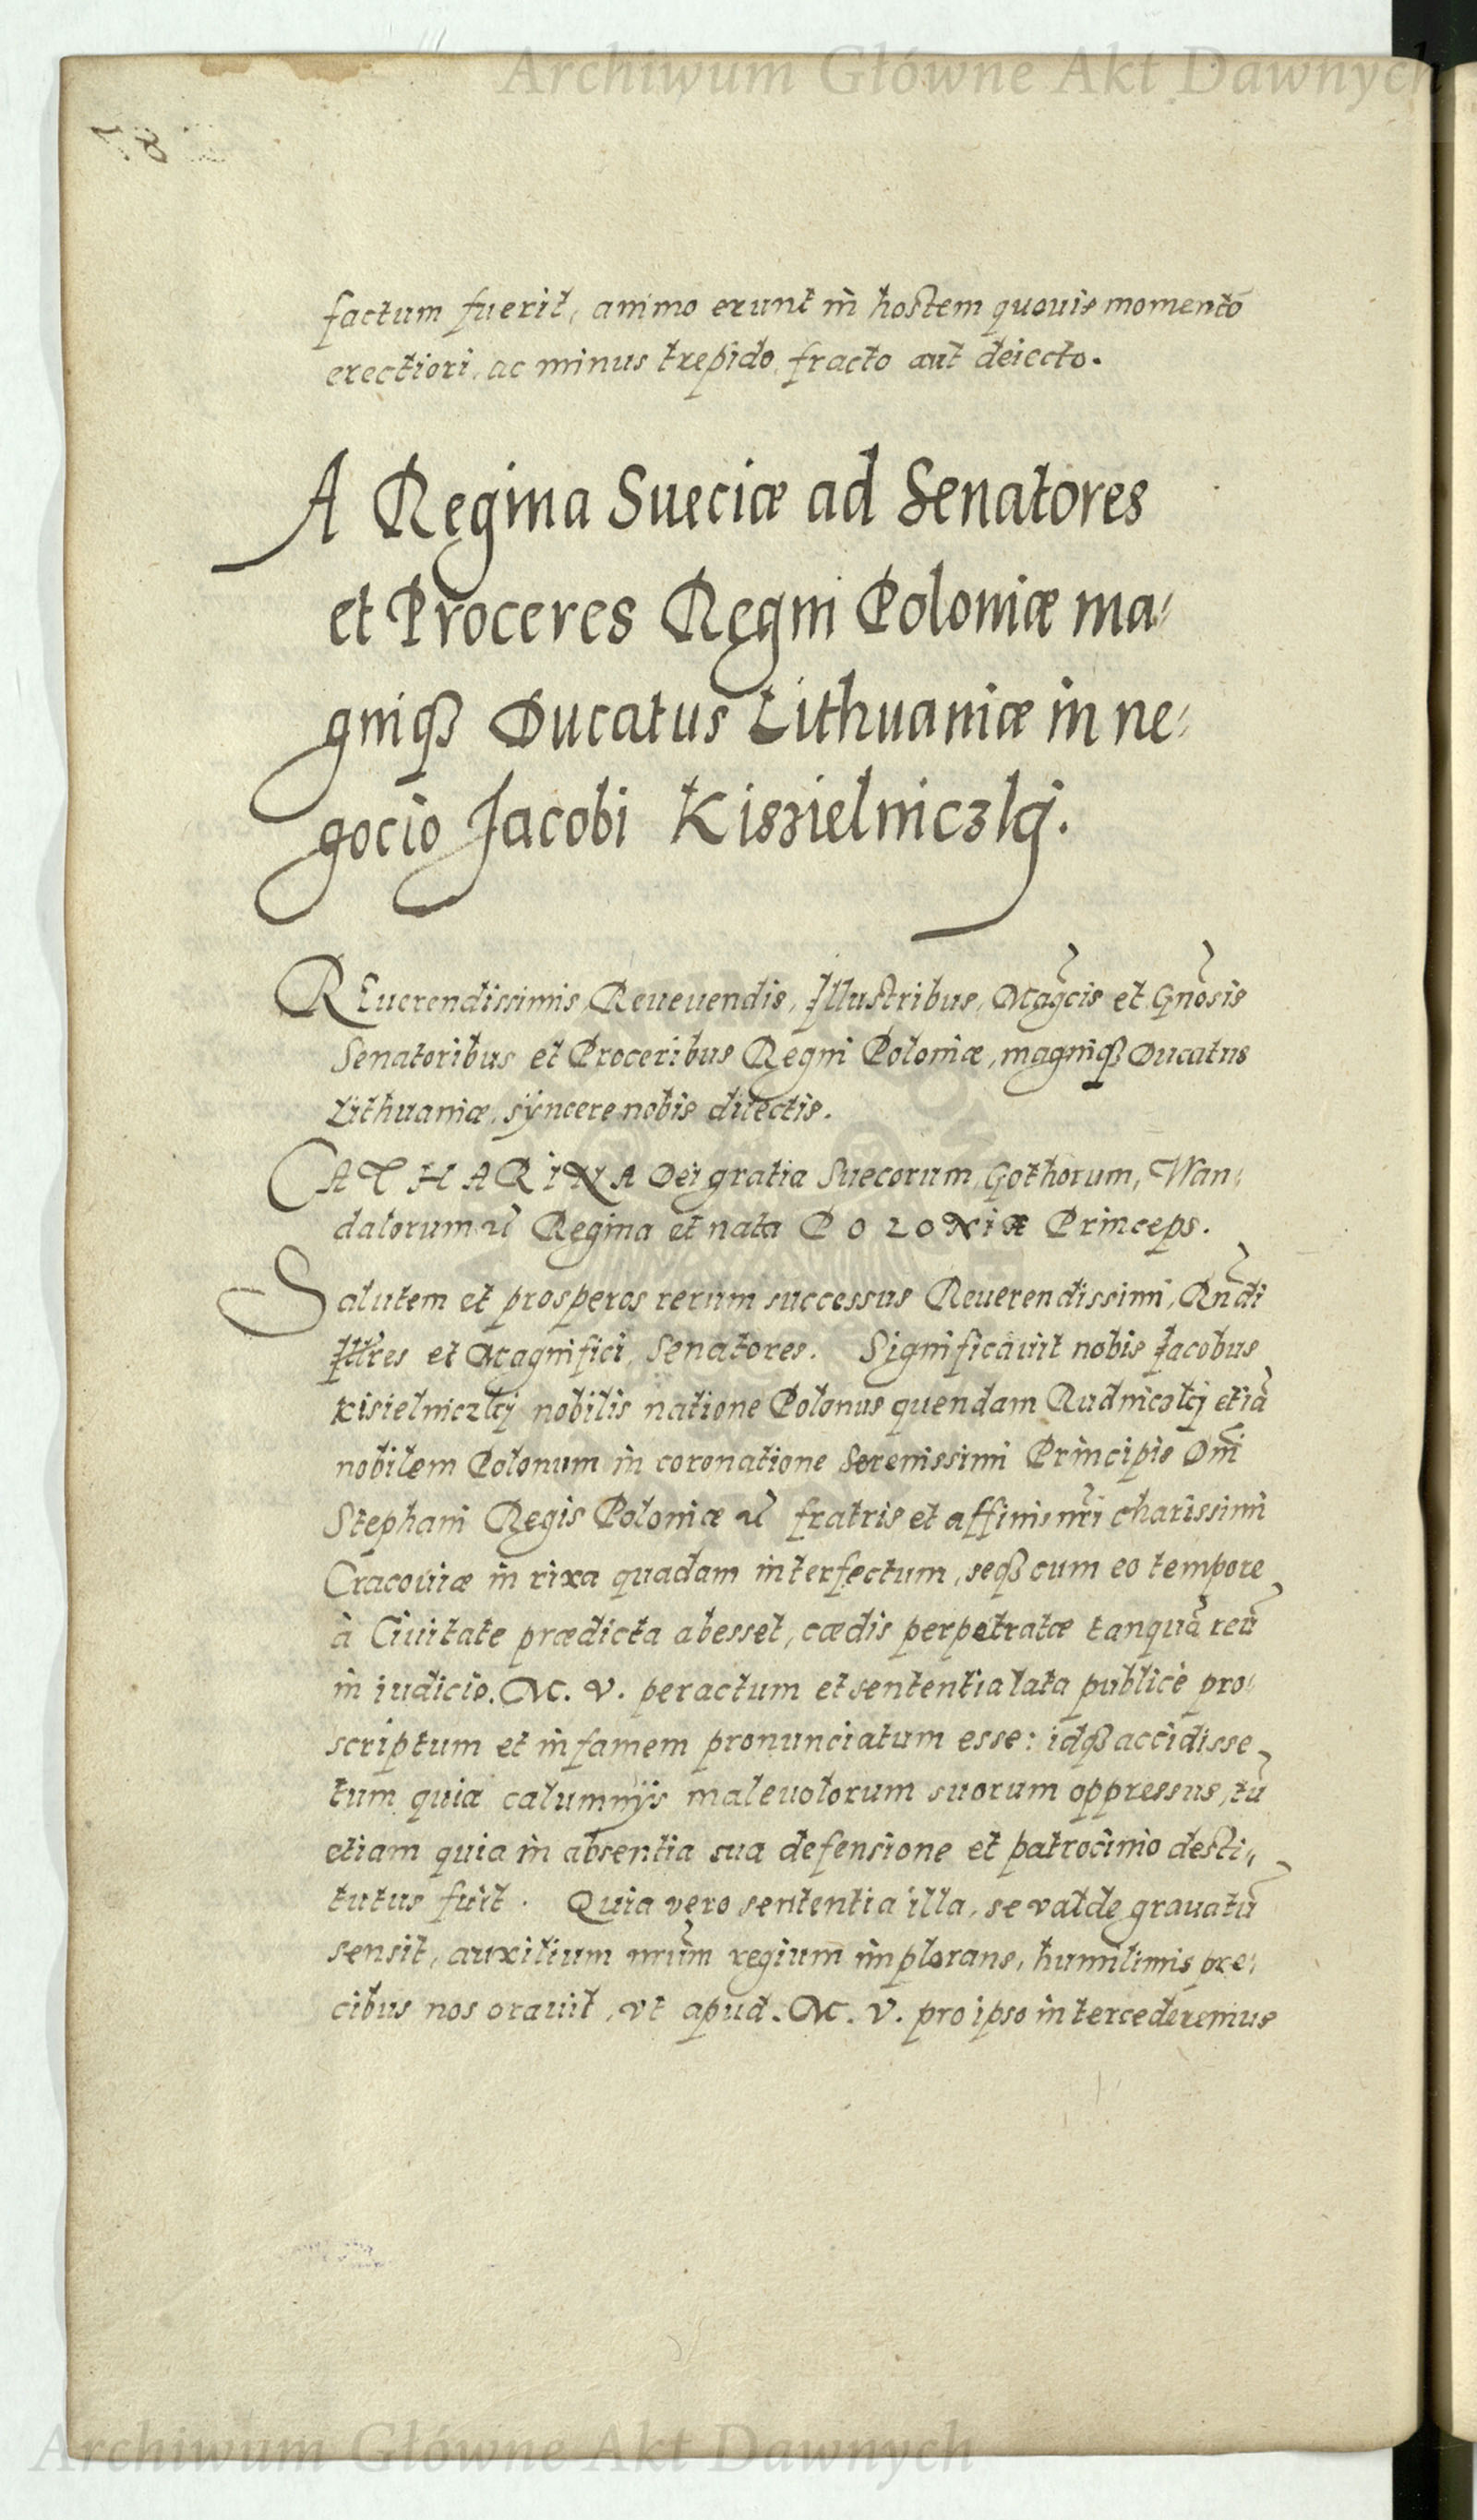 Archiwum Główne Akt Dawnych
factum fuerit, animo erunt in hostem quouis momento
erectiori, ac minus trepido, fracto aut deiecto.
A Regina Sueciæ ad Senatores
et Proceres Regni Poloniæ ma-
gniqꝫ Ducatus Lithuaniæ in ne-
gocio Jacobi Kiszielniczkij.
REuerendissimis, Reueuendis, Illustribus, Mag͂cis et Gn͂osis
Senatoribus et Proceribus Regni Poloniæ, magniqꝫ Ducatus
Lithuaniæ, syncere nobis dilectis.
CATHARINA Dei gratia Suecorum, Gothorum, Wan-
dalorum Regina et nata POLONIÆ Princeps.
Salutem et prosperos rerum successus Reuerendissimi, Rn͂di
Ill͂res et Magnifici, Senatores. Significauit nobis Jacobus
Kisielniczkij nobilis natione Polonus quendam Rudniczkij etiã
nobilem Polonum in coronatione Serenissimi Principis Dn͂i
Stephani Regis Poloniæ fratris et affinis nr͂i charissimi
Cracouiæ in rixa quadam interfectum, seqꝫ cum eo tempore
à Ciuitate prædicta abesset, cædis perpetratæ tanquã reũ
in iudicio. M. V. peractum et sententia lata publicè pro-
scriptum et infamem pronunciatum esse: idqꝫ accidisse
tum quia calumnijs maleuolorum suorum oppressus, tũ
etiam quia in absentia sua defensione et patrocinio desti-
tutus fuit. Quia vero sententia illa, se valde grauatũ
sensit, auxilium nr͂um regium implorans, humilimis pre-
cibus nos orauit, vt apud. M. V. pro ipso intercederemus
Archiwum Główne Akt Dawnych